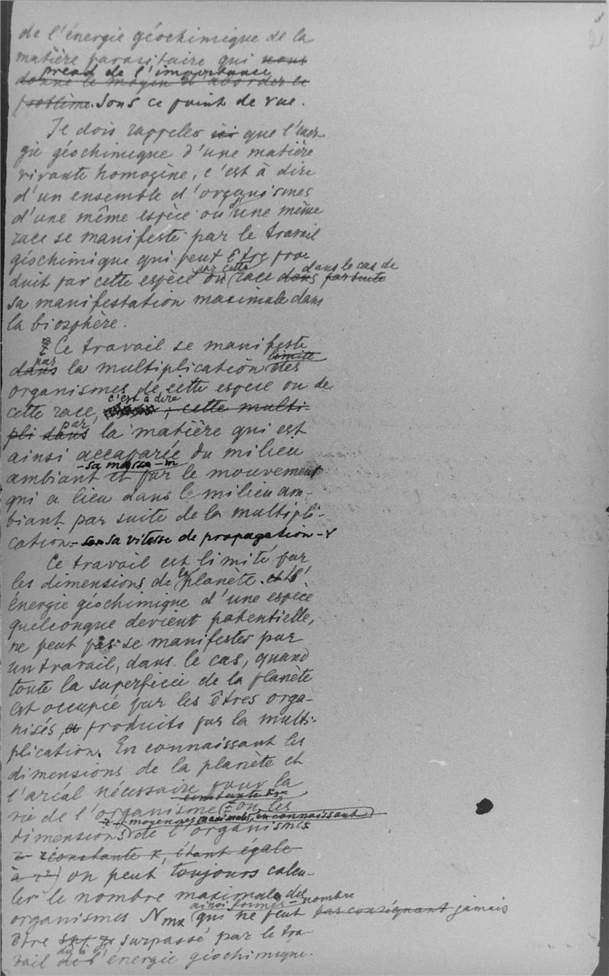 de l'énergie géochimique de la
matière parasitaire qui nous
prend de l'importance
donne le moyen d'aborder le
problème. sous ce point de vue.
Je dois rappeler ici que l'éner-
gie géochimique d'une matière
vivante homogène, c'est à dire
d'un ensemble d'organismes
d'une même espèce ou une même
race se manifeste par le travail
géochimique qui peut être pro-
duit par cette espèce ou par cette race dans dans le cas de par suite
sa manifestation maximale dans
la biosphère.
Ce travail se manifeste
dans par la multiplication limite des
organismes de cette espèce ou de
cette race, c'est à dire, cette multi-
pli dans par la matière qui est
ainsi accaparée du milieu
ambiant – sa massa – m et par le mouvement
qui a lieu dans le milieu am-
biant par suite de la multipli-
cation. – sa vitesse de propagation – v
Ce travail est limité par
les dimensions de la planète. et l'
énergie géochimique d'une espèce
quelconque devient potentielle,
ne peut pas se manifester par
un travail, dans le cas, quand
toute la superficie de la planète
est occupée par les êtres orga-
nisés, produits par la multi-
plication. En connaissant les
dimensions de la planète et
l'aréal nécessaire pour la
vie de l'organisme (ou les
moyennes maximales, en connaissant
dimensions) de l'organisme
constante K, étant égale
à ) on peut toujours calcu-
ler le nombre maximale des
organismes Nmx ainsi former – nombre (qui ne peut par conséquent jamais
être surpassé par le tra-
vail de l'énergie géochimique.